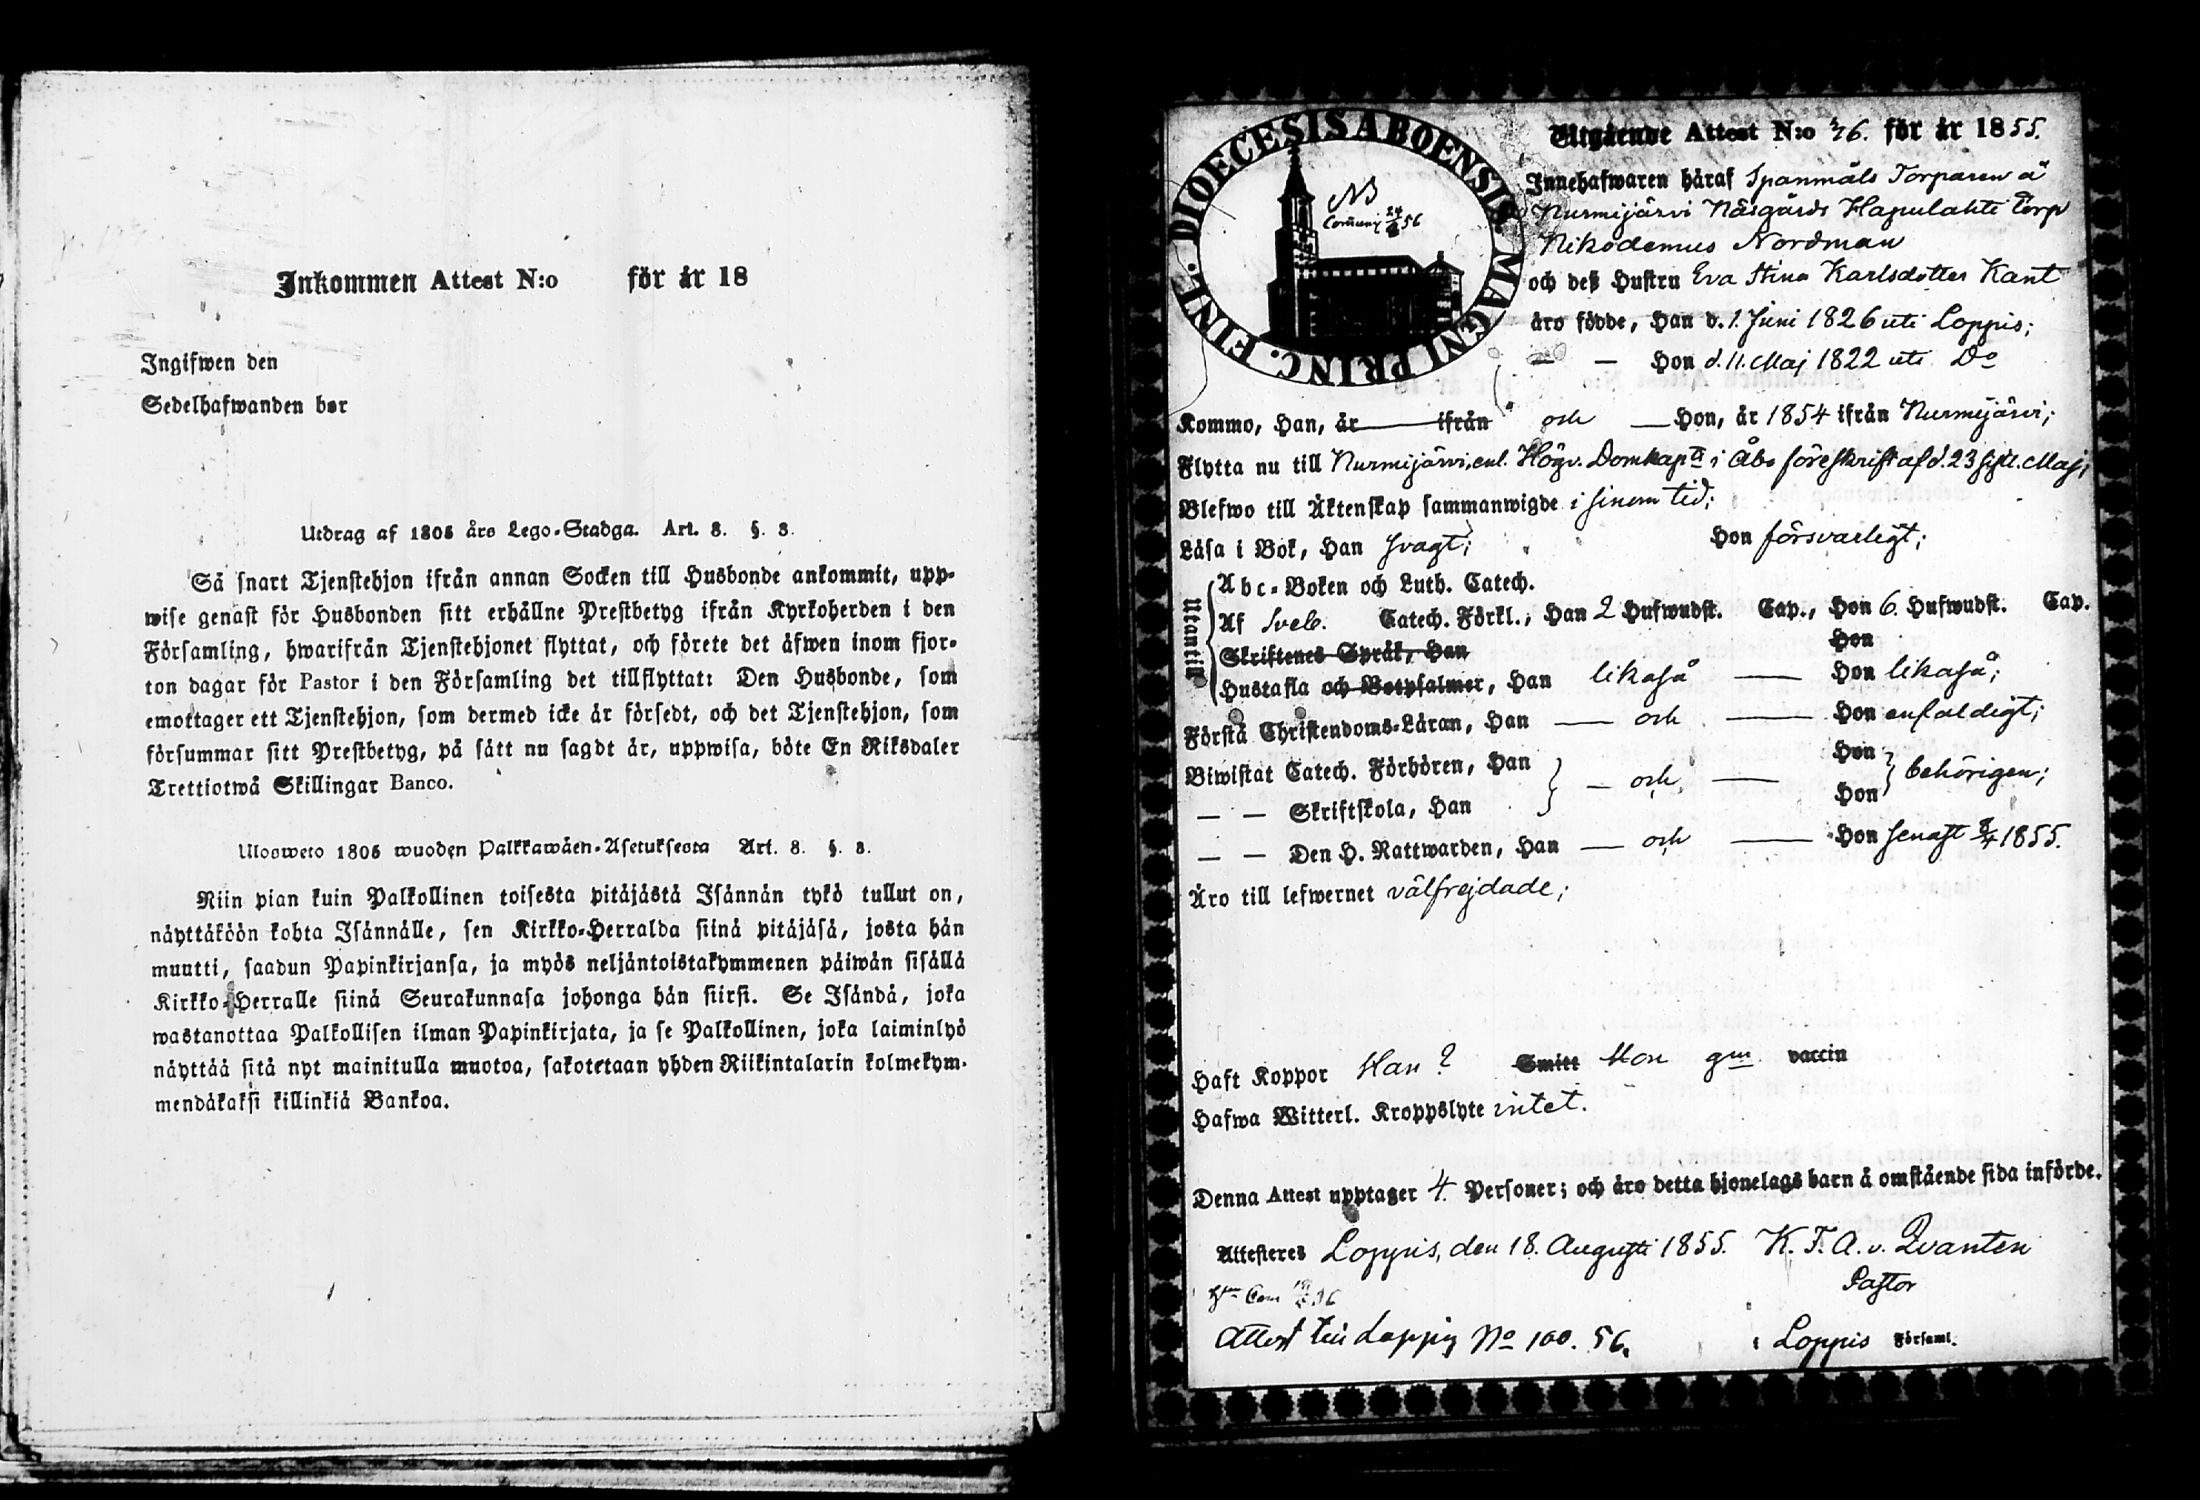 Inkommen Attest N:o för år 18
Ingifwen den
Sedelhafwanden bor
Utdrag af 1805 års Lego-Stadga. Art. 8. §. 3.
Så snart Tjenstehjon ifrån annan Socken till Husbonde ankommit, upp-
wise genast för Husbonden sitt erhållne Prestbetyg ifrån Kyrkoherden i den
Församling, hwarifrån Tjenstehjonet flyttat, och förete det äfwen inom fjor-
ton dagar för Pastor i den Församling det tillflyttat: Den Husbonde, som
emottager ett Tjenstehjon, som dermed icke är försedt, och det Tjenstehjon, som
försummar sitt Prestbetyg, på sätt nu sagdt är, uppwisa, böte En Riksdaler
Trettiotwå Skillingar Banco.
Ulosweto 1805 wuoden Palkkawäen-Asetuksesta Art. 8. §. 3.
Niin pian kuin Palkollinen toisesta pitäjästä Isännän tykö tullut on,
näyttäköön kohta Isännälle, sen Kirkko-Herralda siinä pitäjäsä, josta hän
muutti, saadun Papinkirjansa, ja myös neljäntoistakymmenen päiwän sisällä
Kirkko-Herralle siinä Seurakunnasa johonga hän siirsi. Se Isändä, joka
wastanottaa Palkollisen ilman Papinkirjata, ja se Palkollinen, joka laiminlyö
näyttää sitä nyt mainitulla muotoa, sakotetaan yhden Riikintalarin kolmekym-
mendäkaksi killinkiä Bankoa.
DIOECESIS ABOENSIS. MAGNI PRINC. FINL.
NB
Com̃uny 24/2 56
Utgående Attest N:o 46. för år 1855.
Innehafwaren häraf Spanmåls Torparen å
Nurmijärvi Näsgårds Hapulahti torp
Nikodemus Nordman
och deß Hustru Eva Stina Karlsdotter Kant
äro födde, Han d. 1. Juni 1826 uti Loppis;
— — Hon d. 11. Maj 1822 uti Do
Kommo, Han, år — ifrån och — Hon, år 1854 ifrån Nurmijärvi;
Flytta nu till Nurmijärvi, enl. Högv. Domkaptl i Åbo föreskrift af d. 23 sistl. Maj;
Blefwo till Äktenskap sammanwigde i sinom tid;
Läsa i Bok, Han svagt; Hon försvarligt;
Utantill
Abc-Boken och Luth. Catech.
Af Sveb. Catech. Förkl., Han 2 Hufwudst. Cap., Hon 6. Hufwudst. Cap.
Skriftenes Språk, Han Hon
Hustafla och Botpsalmer, Han likaså — Hon likaså;
Förstå Christendoms-Läran, Han — och — Hon enfaldigt;
Biwistat Catech. Förhören, Han — och — Hon behörigen;
— — Skriftskola, Han Hon
— — Den H. Nattwarden, Han — och — Hon senast 8/4 1855.
Äro till lefwernet välfrejdade;
Haft Koppor Han ? Smitt Hon gm vaccin
Hafwa Witterl. Kroppslyte intet.
Denna Attest upptager 4. Personer; och äro detta hjonelags barn å omstående sida införde.
Attesteres Loppis, den 18. Augusti 1855. K. F. A. v. Qvanten
Pastor
Attest till Loppis No 100. 56.
i Loppis Församl.